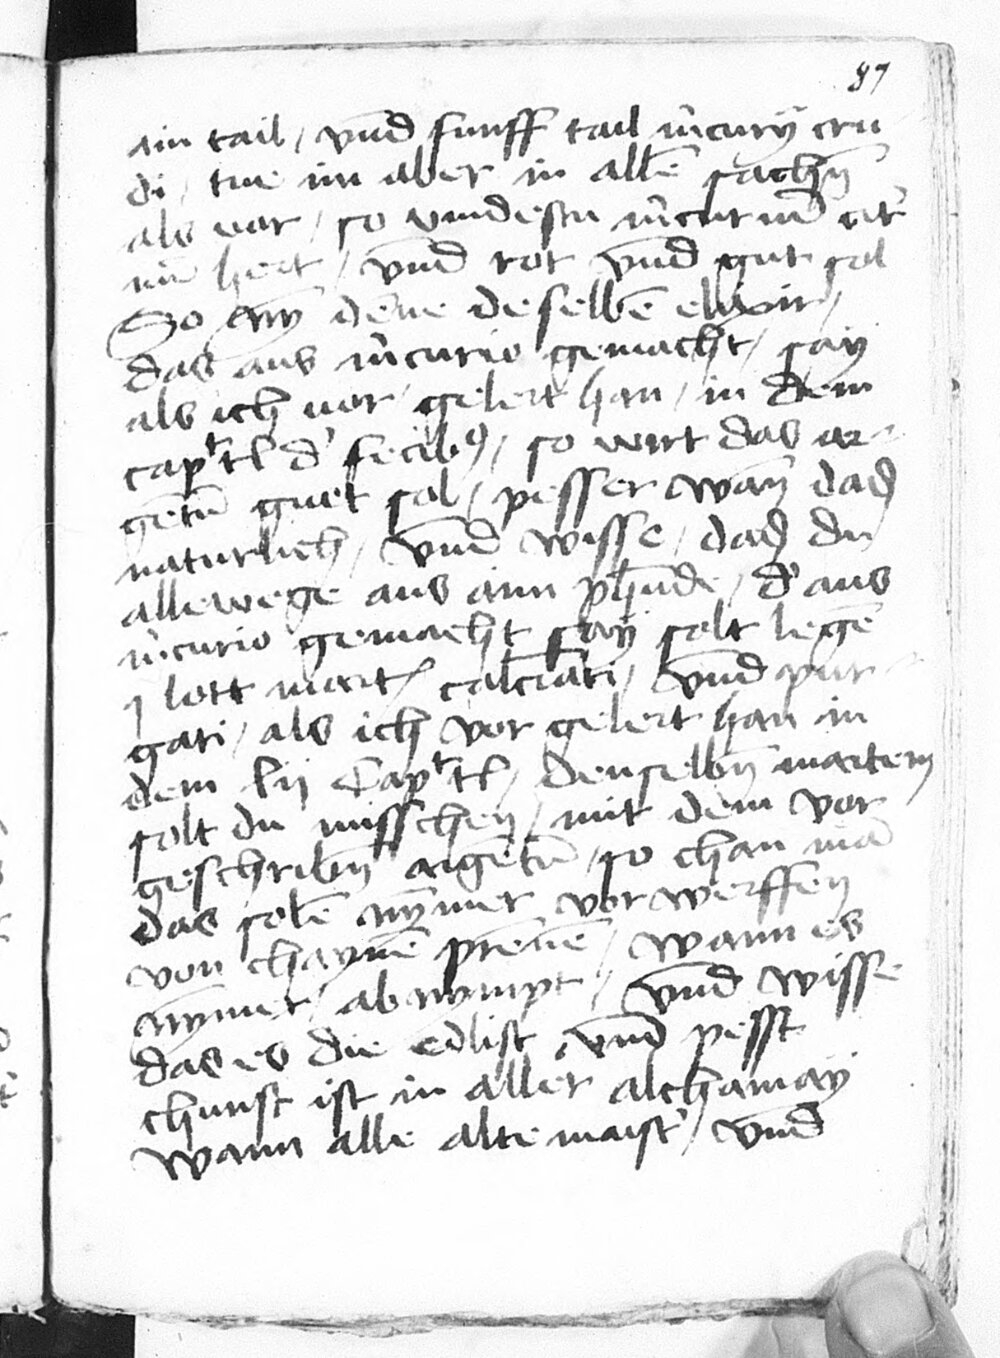 87
ain tail / vnd funff tail m̄curÿ cru
di / tue im aber in allē sachn̄
als vor / so vindestu m̄curiū
hert / vnd rot vnd gut sol
So dēne deselbē elixir /
das aus m̄curio gemacht / saÿ
als ich vor / gelert han / in dem
cap't'l d' fecib9 / so wirt das ar-
gētū guet sol / pesser wān daß
naturlich / vnd wisse / daß du
allewege aus ain phūde / d' aus
m̄curio gemacht saÿ solt legē
j lott mart' calciāti / vnd pur-
gati / als ich vor gelert han in
dem lij Cap't'l / denselbn̄ martem
solt du misschen / mit dem vor
geschribn̄ argētū / so chan mā
das solē nÿmmer vorwerffen
von chaÿnē prēnē / wann es
nÿmer / abnympt / vnd wisse
das es die edlist vnd pesst
chunst ist in aller alchamaÿ
wann alle alte maist' / vnd